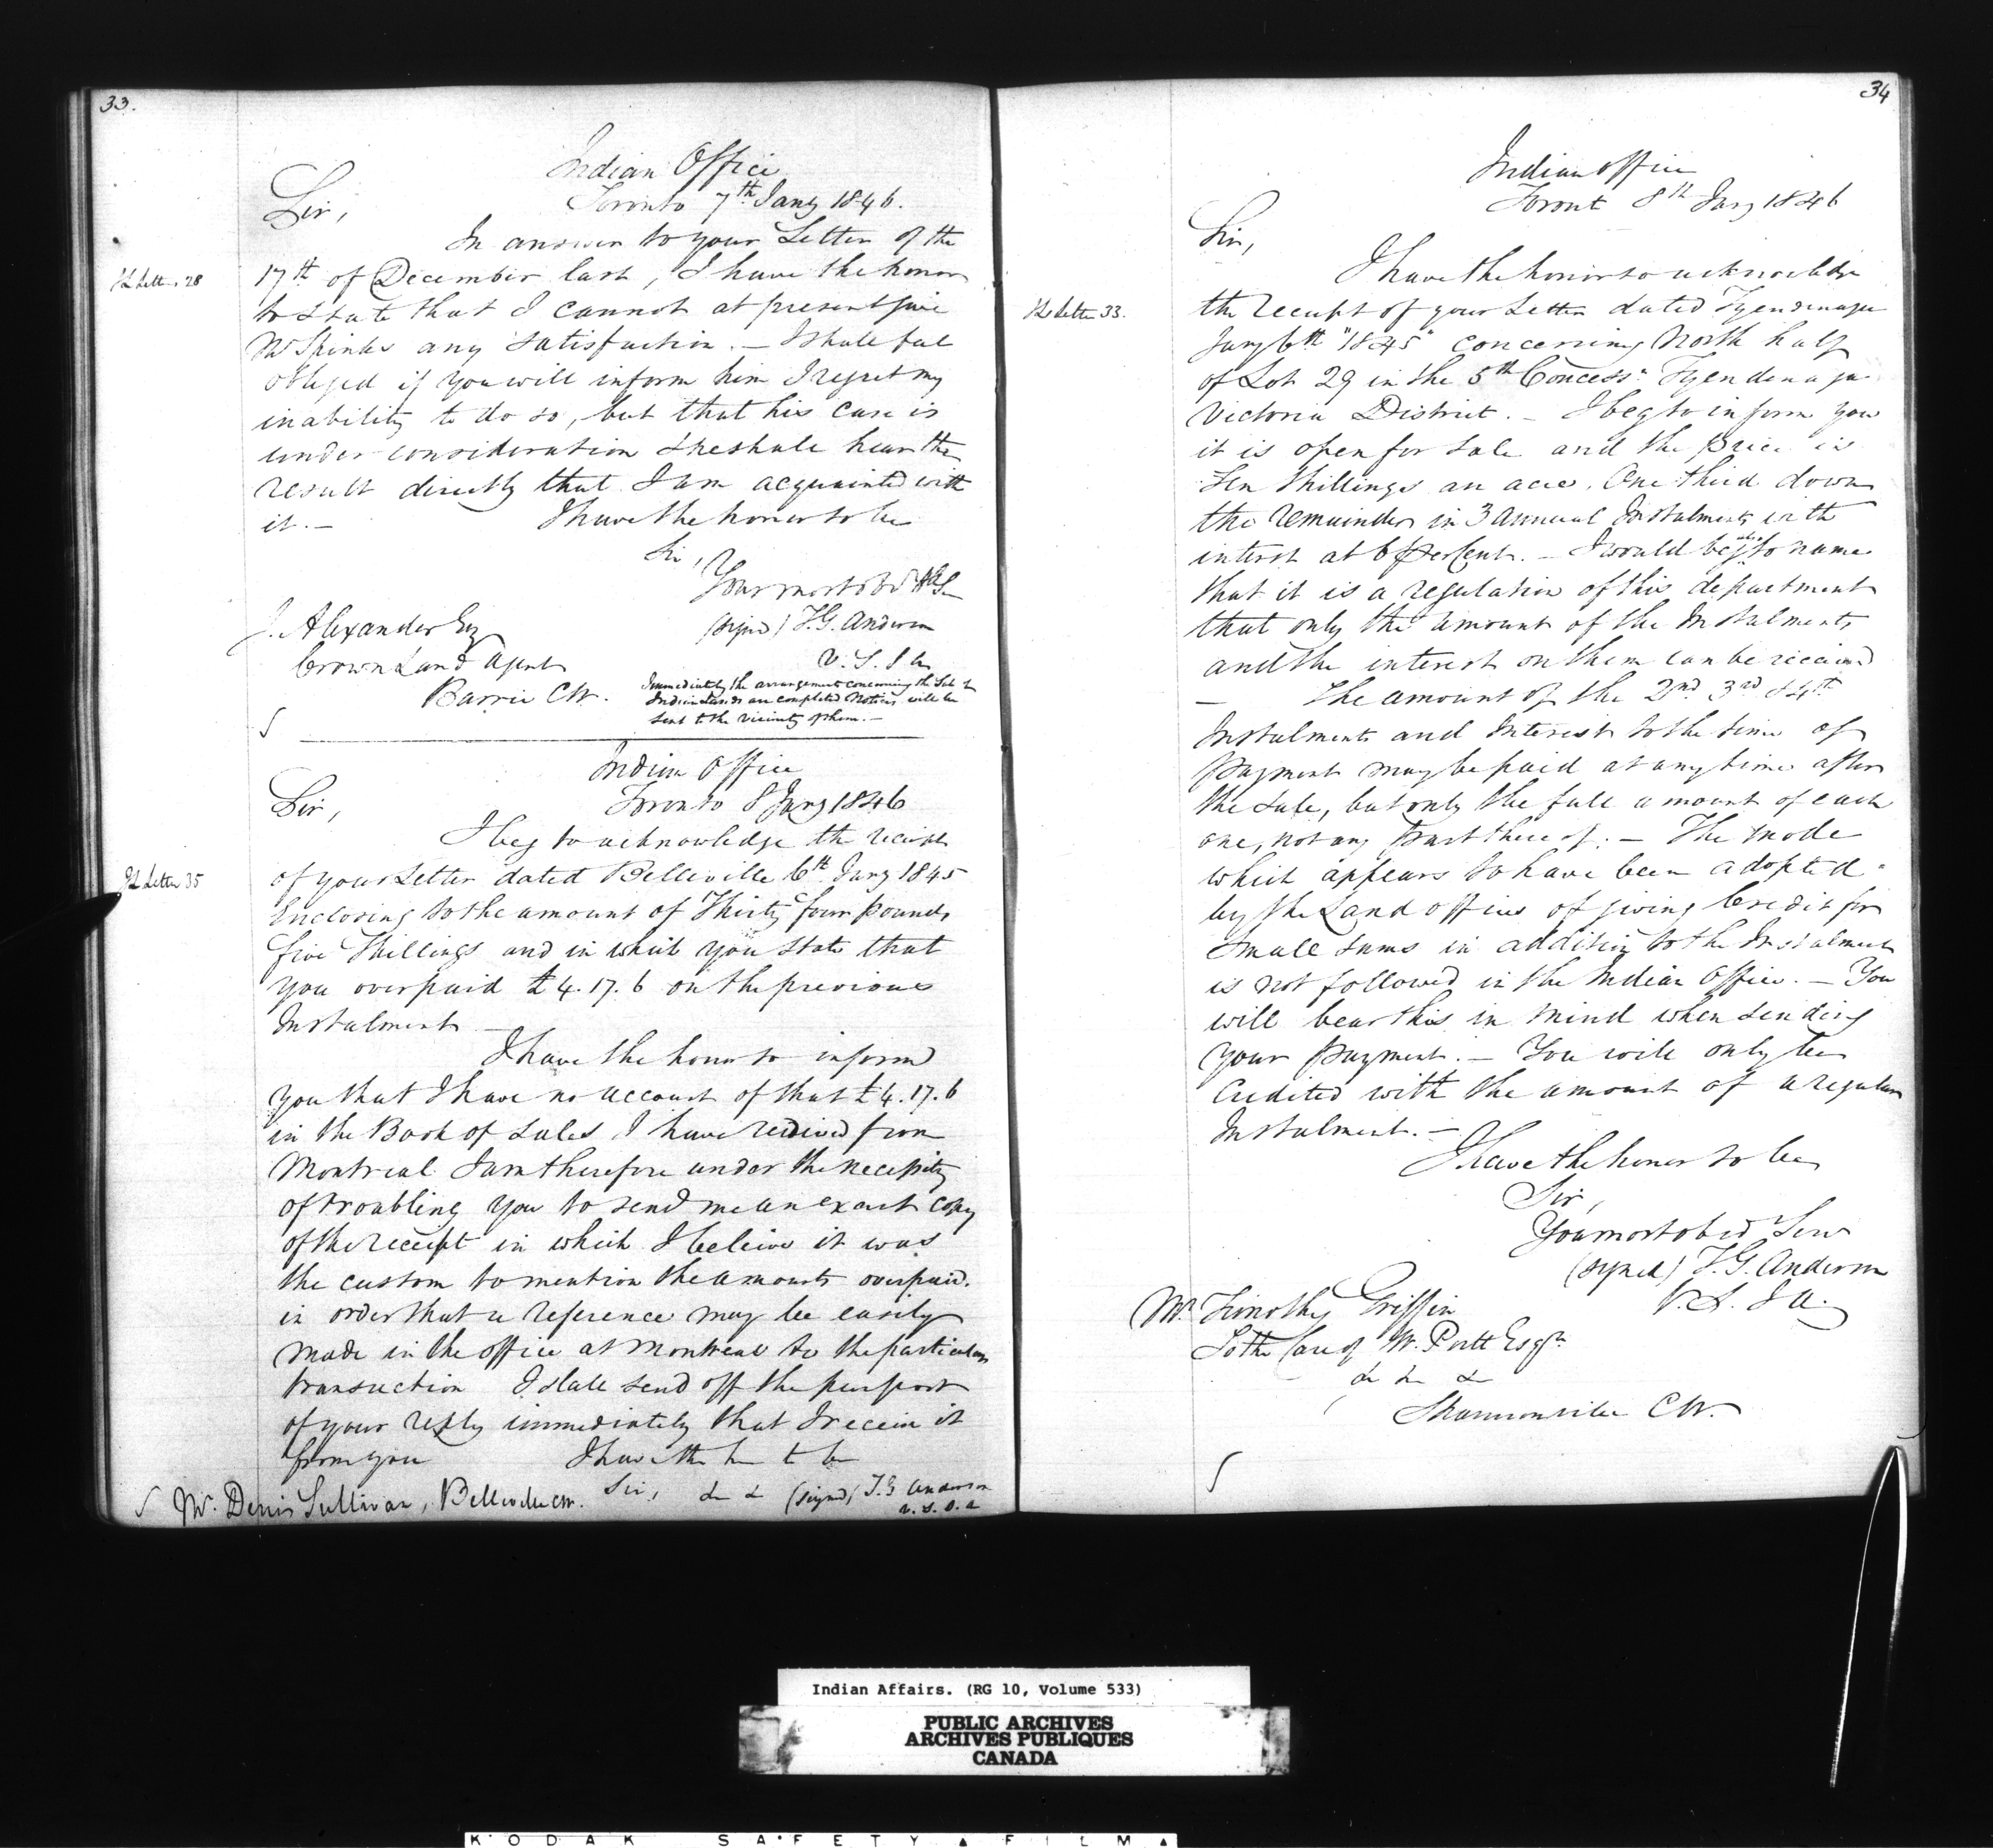 33.
Indian Office
Toronto 7th Jany 1846.
Sir,
In answer to your Letter of the
17th of December last, I have the honor
to state that I cannot at present give
Mr Spinks any satisfaction. — I shall feel
obliged if you will inform him I regret my
inability to do so, but that his case is
under consideration & he shall hear the
result directly that I am acquainted with
it. — I have the honor to be
Sir,
Your most obd
(signed) T.G. Anderson
V.S.I.A.
J. Alexander Esq
Crown Land Agent
Barrie CW.
Immediately the arrangement concerning the Sale of
Indian Lands are completed Notices will be
sent to the vicinity of them. —
Letter 28
Indian Office
Toronto 8 Jany 1846
Sir,
I beg to acknowledge the receipt
of your Letter dated Belleville 6th Jany 1845
Enclosing to the amount of Thirty four pounds
five Shillings and in which you state that
you overpaid £4.17.6 on the previous
Instalment —
I have the honor to inform
you that I have no account of that £4.17.6
in the Book of Sales I have received from
Montreal. I am therefore under the necessity
of troubling you to send me an exact copy
of the receipt in which I beleive it was
the custom to mention the amounts overpaid.
in order that a reference may be easily
made in the office at Montreal to the particular
transaction I shall send off the purport
of your reply immediately that I receive it
from you I have the hr to be
Sir, & & (signed) T.G Anderson
V.S.I.A
Mr. Denis Sullivan, Belleville CW.
Letter 35
34
Indian Office
Toront 8th Jany 1846
Sir,
I have the honor to acknowledge
the receipt of your Letter dated Tyendinaga
Jany 6th "1845" concerning North half
of Lot 29 in the 5th Concessn Tyendenaga
Victoria District. — I beg to inform you
it is open for sale and the price is
Ten Shillings an acre. One third down
the remainder in 3 annual Instalments with
interest at 6 per Cent. — I would beg also to name
that it is a regulation of this department
that only the amount of the Instalments
and the interest on them can be received
— The amount of the 2nd 3rd & 4th
Instalments and Interest to the time of
payment may be paid at any time after
the sale, but only the full amount of each
one, not any part thereof. — The mode
which appears to have been adopted
by the Land offices of giving Credit for
small sums in addition to the Instalment
is not followed in the Indian Office. — You
will bear this in mind when sending
your payment. — You will only be
Credited with the amount of a regular
Instalment. —
I have the honor to be
Sir,
Your most obed Serv
(signed) T.G. Anderson
V.S.I.A.
Mr. Timothy Griffin
To the Care of W. Portt Esqr.
& & &
Shannonville CW.
Letter 33.
Indian Affairs. (RG 10, Volume 533)
PUBLIC ARCHIVES
ARCHIVES PUBLIQUES
CANADA
KODAK SAFETY FILM